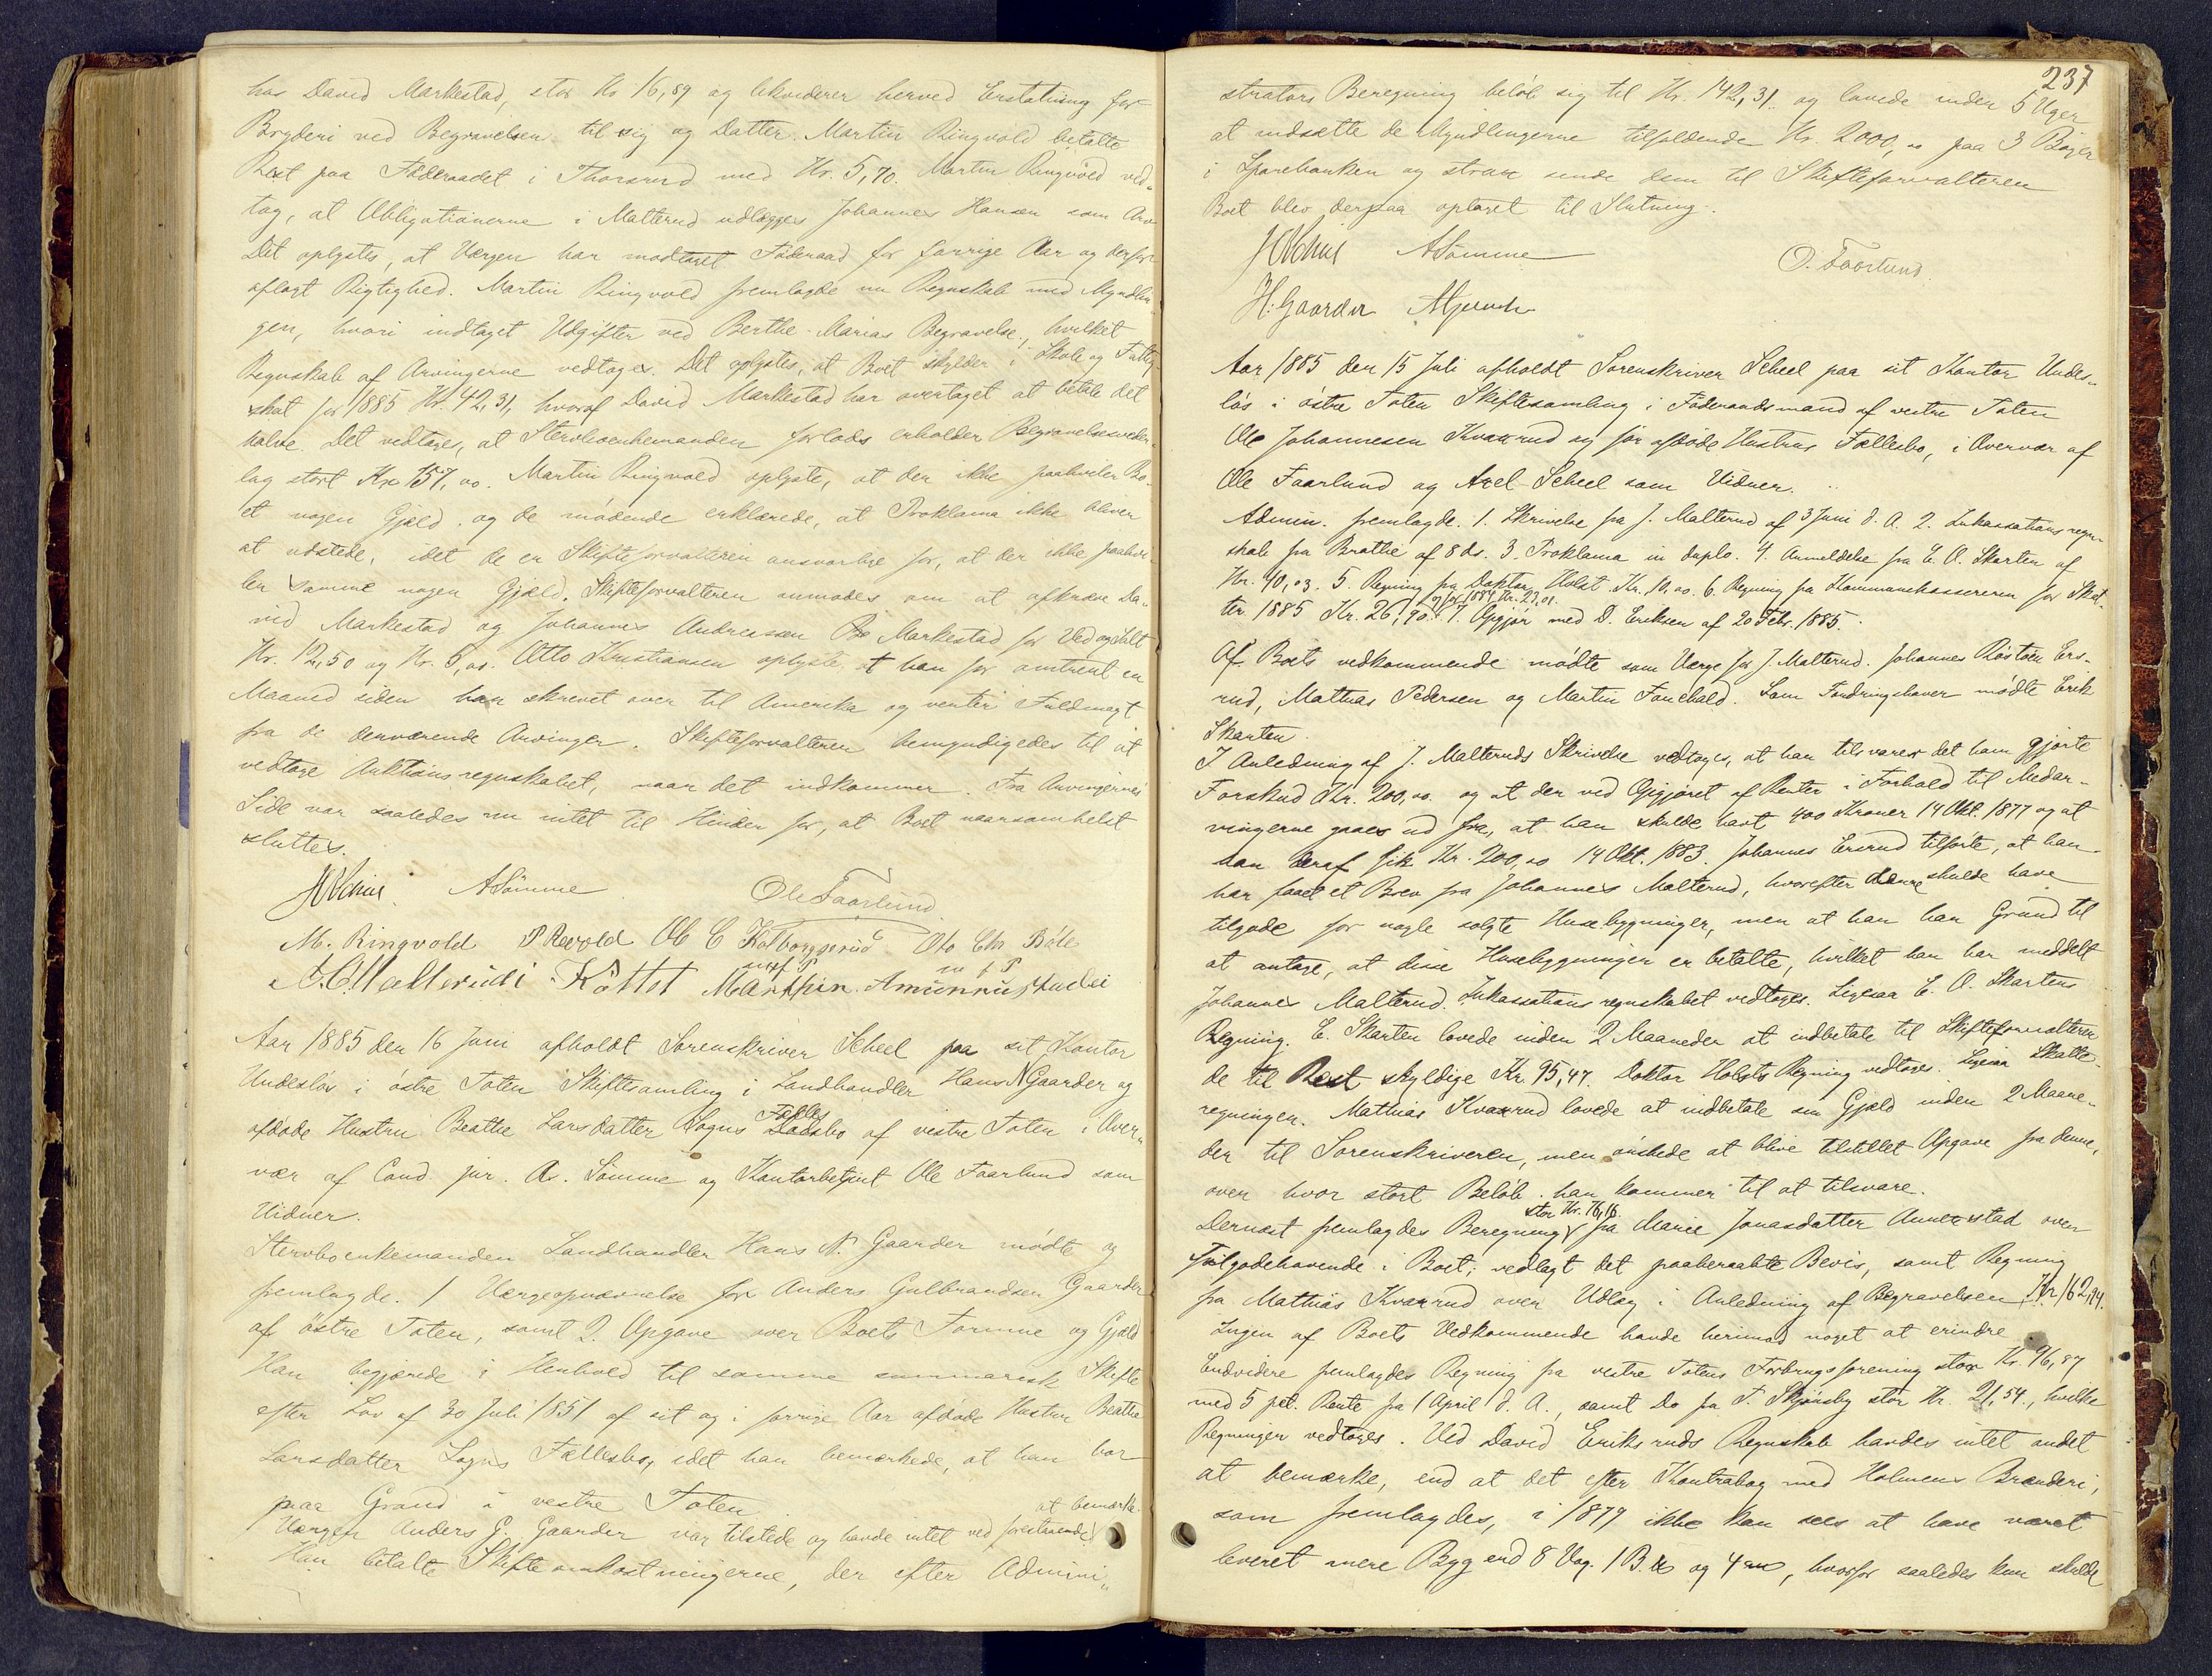 hos David Markestad, stor Kr 16,89 og likviderer herved Erstatning for
Bryderi ved Begravelsen til sig og Datter. Martin Ringvold betalte
Rest paa Føderaadet i Thorsrud med Kr. 5,70. Martin Ringvold ved-
tog, at Obligationerne i Malterud udlægges Johannes Hansen som Arv
Det oplystes, at Værgen har modtaget Føderaad for forrige Aar og derfor
aflagt Rigtighed. Martin Ringvold fremlagde nu Regnskab med Myndlin
gen, hvori indtaget Udgifter ved Berthe Marias Begravelse, hvilket
Regnskab af Arvingerne vedtoges. Det oplystes, at Boet skylder i Skole og Fattig
skat for 1885 Kr. 42,31, hvoraf David Markestad har overtaget at betale det
halve. Det vedtoges, at Stervboenkemanden forlods erholder Begravelsesveder-
lag stort Kr 157,00. Martin Ringvold oplyste, at der ikke paahviler Bo-
et nogen Gjæld, og de mødende erklærede, at Proklama ikke bliver
at udstede, idet de er Skifteforvalteren ansvarlige for, at der ikke paahvi-
ler samme nogen Gjæld. Skifteforvalteren anmodes om at afkræve Da-
vid Markestad og Johannes Andreassen Markestad for Ved og Salt
Kr. 12,50 og Kr. 5,00. Otto Kristiansen oplyste, at han for omtrent en
Maaned siden har skrevet over til Amerika og venter Fuldmagt
fra de derværende Arvinger. Skifteforvalteren bemyndigedes til at
vedtage Auktionsregnskabet, naar det indkommer. Fra Arvingernes
Side var saaledes nu intet til Hinder for, at Boet naarsomhelst
sluttes.
ASömme Ole Faarlund
M. Ringvold P Revold Ole C Kolborgsrud Oto Chr Böle
m f P m f P
Aar 1885 den 16 Juni afholdt Sorenskriver Scheel paa sit Kontor
Undesløs i østre Toten Skiftesamling i Landhandler Hans N Gaarder og
Fælles
afdøde Hustru Beathe Larsdatter Sogns Dødsbo af vestre Toten i Over-
vær af Cand. jur. A. Sømme og Kontorbetjent Ole Faarlund som
Vidner.
Stervboenkemanden Landhandler Hans N. Gaarder mødte og
fremlagde. 1 Værgeopnævnelse for Anders Gulbrandsen Gaarder
af østre Toten, samt 2. Opgave over Boets Formue og Gjæld
Han begjærede i Henhold til samme summarisk Skifte
efter Lov af 30 Juli 1851 af sit og i forrige Aar afdøde Hustru Beathe
Larsdatter Sogns Fællesbo, idet han bemærkede, at han bor
paa Grand i vestre Toten.
at bemærke.
Værgen Anders G. Gaarder var tilstede og havde intet ved forestaaende
Han betalte Skifteomkostningerne, der efter Admini-
237
strators Beregning beløb sig til Kr. 142,31 og lovede inden 5 Uger
at indsætte de Myndlingerne tilfaldende Kr. 2000,00 paa 3 Bøger
i Sparebanken og strax sende dem til Skifteforvalteren
Boet blev derpaa optaget til Slutning.
ASömme O. Faarlund
H. Gaarder
Aar 1885 den 15 Juli afholdt Sorenskriver Scheel paa sit Kontor Undes-
løs i østre Toten Skiftesamling i Føderaadsmand af vestre Toten
Ole Johannesen Kværrud og før afdøde Hustrus Fællesbo, i Overvær af
Ole Faarlund og Axel Scheel som Vidner.
Admin. fremlagde. 1. Skrivelse fra J. Malterud af 3 Juni d. A. 2. Inkassationsregn-
skab fra Brathe af 8 ds. 3. Proklama in duplo. 4. Anmeldelse fra E. O. Skarten af
Kr. 40,03. 5. Regning fra Doktor Holst Kr. 10,00. 6. Regning fra Kommunekassereren for Skat-
og for 1884 Kr. 23,01.
ter 1885 Kr. 26,90. 7. Opgjør med D. Eriksen af 20 Febr. 1885.
Af Boets vedkommende mødte som Værge for J. Malterud. Johannes Røstøen Ers-
rud, Mathias Pedersen og Martin Fauchald. Som Fordringshaver mødte Erik
Skarten.
I Anledning af J. Malteruds Skrivelse vedtoges, at han tilsvarer det ham gjorte
Forskud Kr. 200,00 og at der ved Opgjøret af Renter i Forhold til Medar-
vingerne gaaes ud fra, at han skulde havt 400 Kroner 14 Okt. 1877 og at
han deraf fik Kr. 200,00 14 Okt. 1883. Johannes Ersrud tilførte, at han
har faaet et Brev fra Johannes Malterud, hvorefter denne skulde have
tilgode for nogle solgte Husebygninger, men at han har Grund til
at antage, at disse Husebygninger er betalte, hvilket han har meddelt
Johannes Malterud. Inkassationsregnskabet vedtoges. Ligesaa E. O. Skartens
Regning. E. Skarten lovede inden 2 Maaneder at indbetale til Skifteforvalteren
de til Rest skyldige Kr. 95,47. Doktor Holsts Regning vedtoges. Ligesaa Skatte-
regningen. Mathias Kværrud lovede at indbetale sin Gjæld inden 2 Maane-
der til Sorenskriveren, men ønskede at blive tilstillet Opgave fra denne,
over hvor stort Beløb han kommer til at tilsvare.
stor Kr. 76,16
Dernæst fremlagdes Beregning fra Marie Jonasdatter Annerstad over
Tilgodehavende i Boet, vedlagt det paaberaabte Bevis, samt Regning
fra Mathias Kværrud over Udlæg i Anledning af Begravelsen, Kr 162,94.
Ingen af Boets Vedkommende havde herimod noget at erindre
Endvidere fremlagdes Regning fra vestre Totens Forbrugsforening stor Kr. 96,87
med 5 pCt. Rente fra 1 April d. A., samt Do fra T. Skjønsby stor Kr. 21,54, hvilke
Regninger vedtoges. Ved David Eriksruds Regnskab havdes intet andet
at bemærke, end at det efter Kontrabog med Holmens Brænderi,
som fremlagdes, i 1879 ikke kan sees at have været
leveret mere Byg end 8 Vog. 1 B. og 4, hvorfor saaledes kun skulde